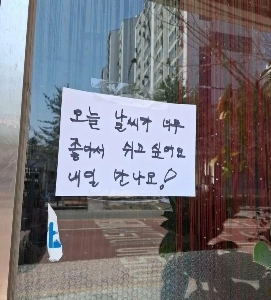 오늘 날씨가 너무
좋아서 쉬고 싶어요
내일 만나요!